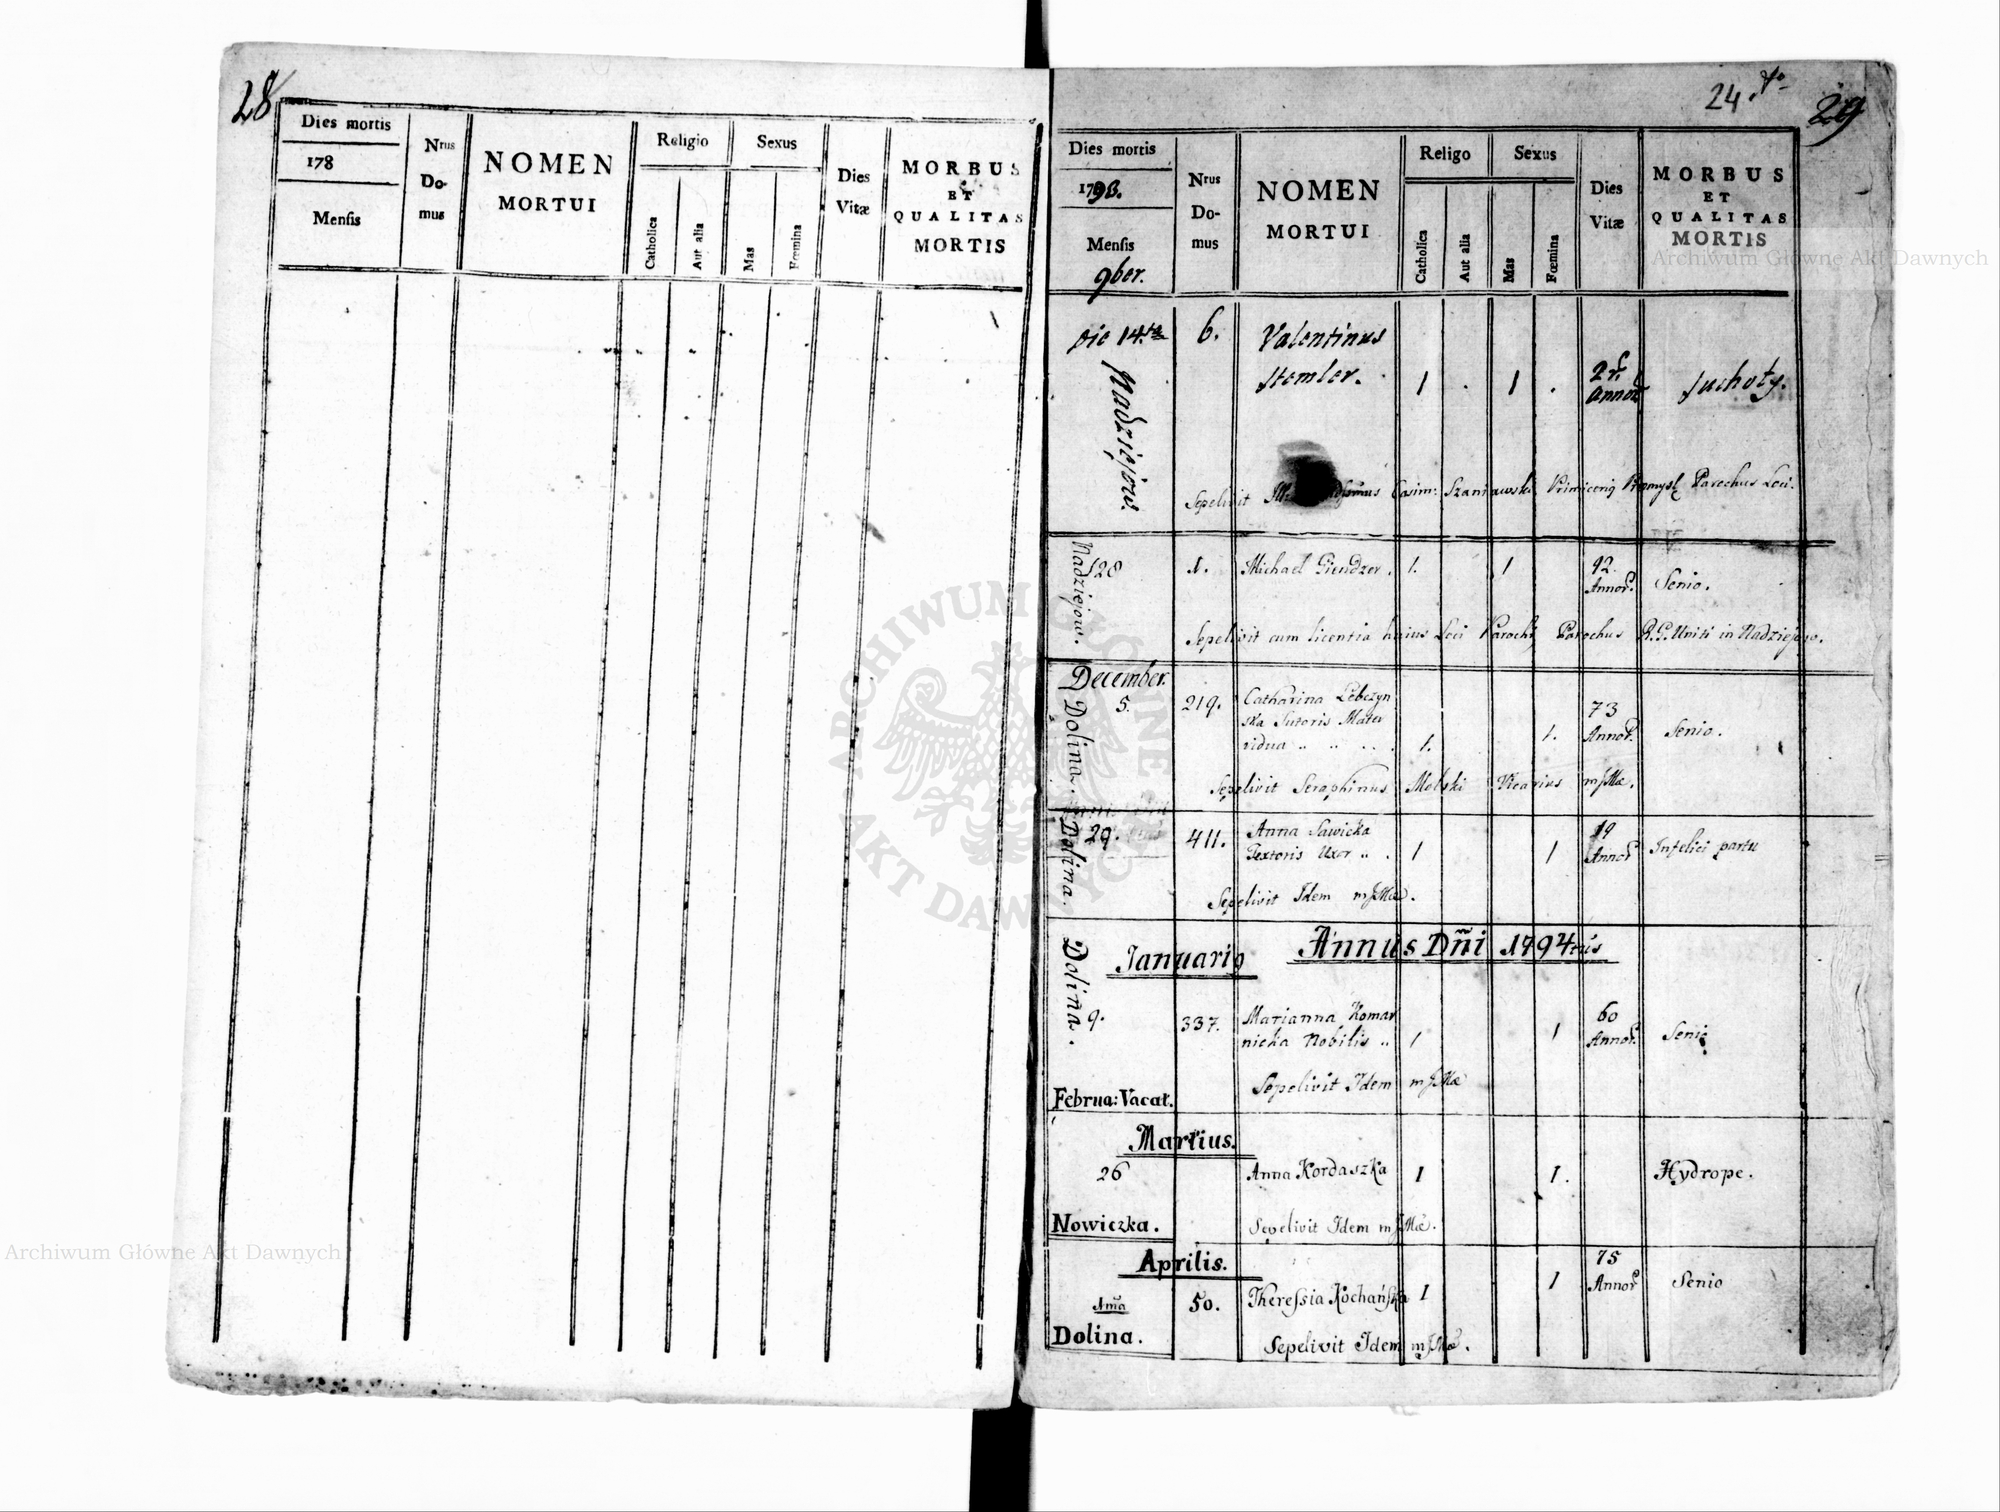 28
Dies mortis
178
Mensis
Nrus
Do-
mus
NOMEN
MORTUI
Religio
Catholica
Aut alia
Sexus
Mas
Fœmina
Dies
Vitæ
MORBUS
ET
QUALITAS
MORTIS
24.
29
Dies mortis
1793.
Mensis
9ber.
Nrus
Do-
mus
NOMEN
MORTUI
Religo
Catholica
Aut alia
Sexus
Mas
Fœmina
Dies
Vitæ
MORBUS
ET
QUALITAS
MORTIS
Die 14ta
Nadziejów.
6.
Valentinus
Stemler.
1 . 1 .
Annor
suchoty.
Sepelivit Casim: Szaniawski Parochus Loci.
Nadziejow.
28
1.
Michael Giendzer.
1. 1
92.
Annor.
Senio.
Sepelivit cum licentia huius Loci Parochi Parochus R.G. Uniti in Nadziejow.
December.
5.
Dolina.
219.
Catharina Lebczyn
ska Sutoris Mater
vidua
1. 1.
73
Annor.
Senio.
Sepelivit Seraphinus Molski Vicarius
29.
Dolina.
411.
Anna Sawicka
Textoris Uxor
1 1
19
Annor
Infelici partu
Sepelivit Idem
Annus Dñi 1794tus
Januario
Dolina.
9.
337.
Marianna Komar
nicka Nobilis
1 1
60
Annor.
Senio
Sepelivit Idem
Februa: Vacat.
Martius.
26
Anna Kordaszka
1 1.
Hydrope.
Nowiczka.
Sepelivit Idem
Aprilis.
75
Annor
Senio
50.
Theressia Kochańska
1 1
Dolina.
Sepelivit Idem
ARCHIWUM GŁÓWNE AKT DAWNYCH
Archiwum Główne Akt Dawnych
Archiwum Główne Akt Dawnych